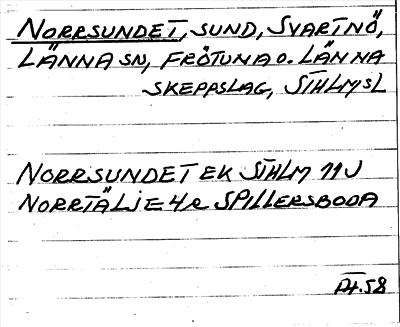 NORRSUNDET, SUND, SVARTNÖ,
LÄNNA SN, FRÖTUNA O. LÄNNA
SKEPPSLAG, STHLMSL
NORRSUNDET EK STHLM 11J
NORRTÄLJE 4 SPILLERSBODA
58